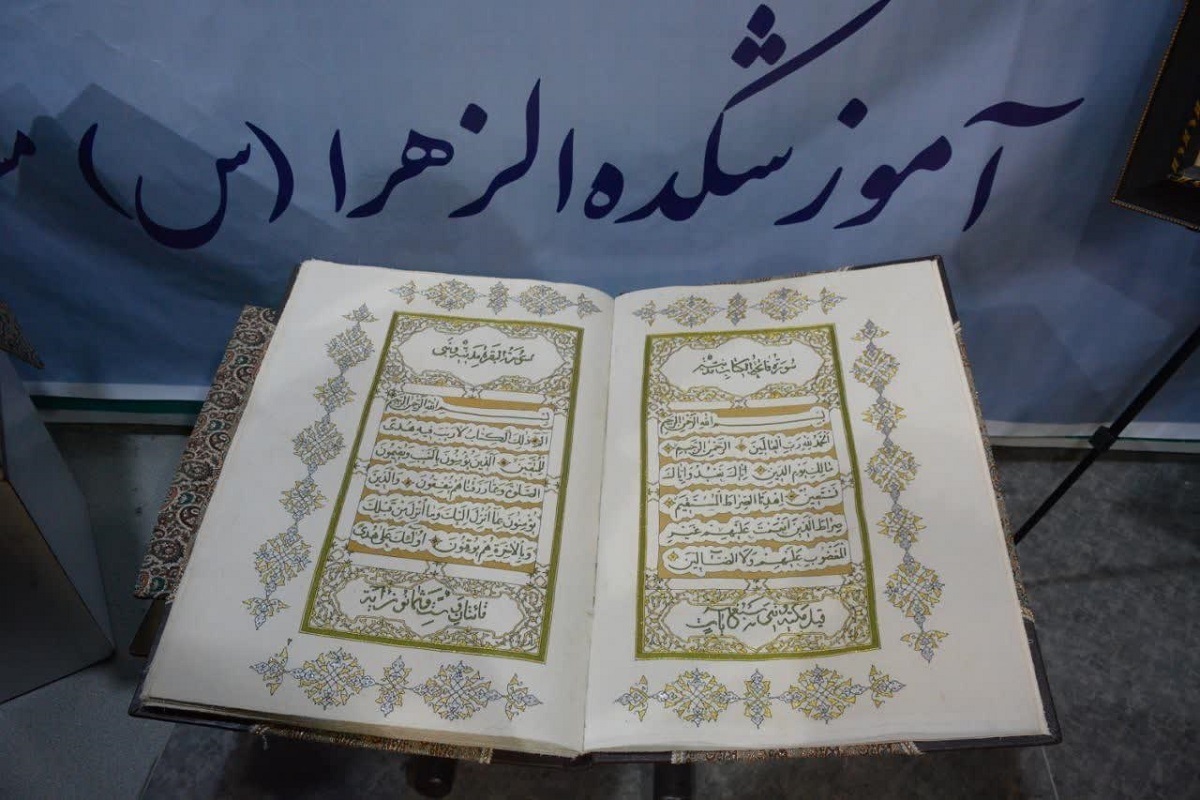 آموزشکده الزهرا (س)
سورة فاتحة الكتاب
بسم الله الرحمن الرحيم
الحمد لله رب العالمين الرحمن الرحيم
مالك يوم الدين إياك نعبد وإياك
نستعين اهدنا الصراط المستقيم
صراط الذين أنعمت عليهم غير
المغضوب عليهم ولا الضالين
سورة البقرة مدنية وهي
بسم الله الرحمن الرحيم
الم ذلك الكتاب لا ريب فيه هدى
للمتقين الذين يؤمنون بالغيب ويقيمون
الصلوة ومما رزقناهم ينفقون والذين
يؤمنون بما أنزل إليك وما أنزل من قبلك
وبالآخرة هم يوقنون أولئك على هدى
مائتان وست وثمانون آية